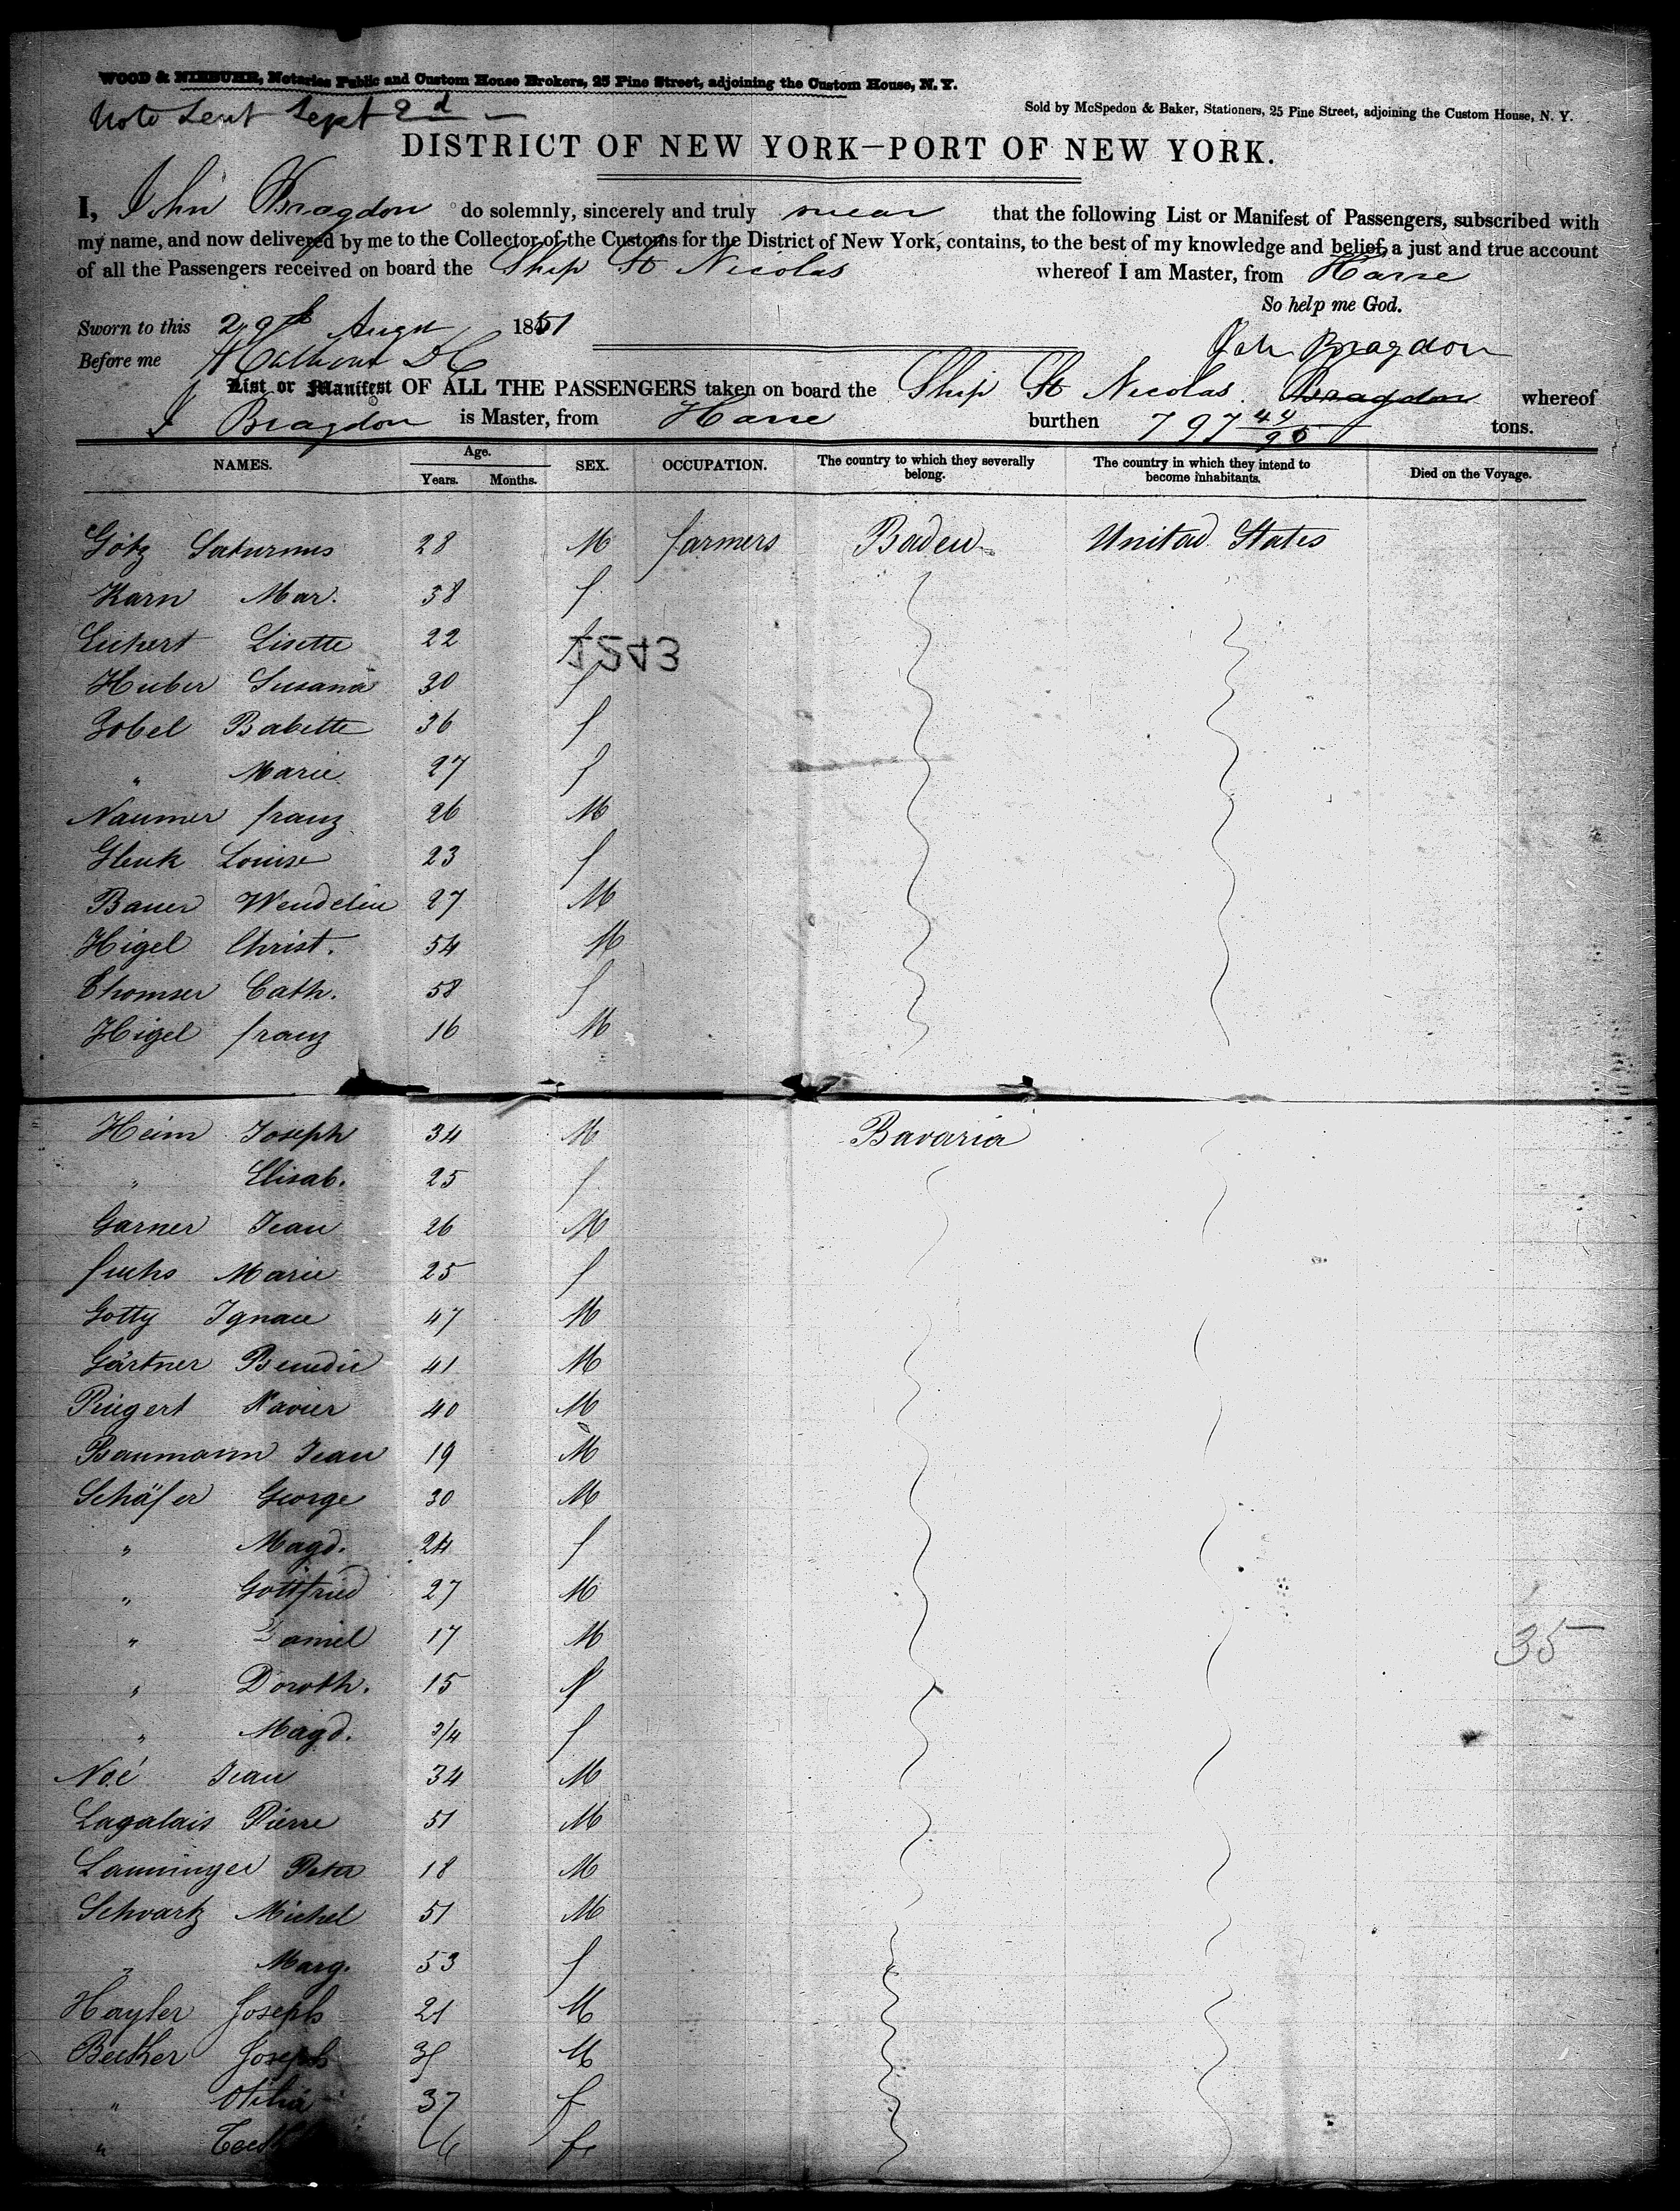 WOOD & NIEBUHR, Notaries Public and Custom House Brokers, 25 Pine Street, adjoining the Custom House, N. Y.
Note sent Sept 2d
Sold by McSpedon & Baker, Stationers, 25 Pine Street, adjoining the Custom House, N. Y.
DISTRICT OF NEW YORK—PORT OF NEW YORK.
I, John Bragdon do solemnly, sincerely and truly swear that the following List or Manifest of Passengers, subscribed with
my name, and now delivered by me to the Collector of the Customs for the District of New York, contains, to the best of my knowledge and belief, a just and true account
of all the Passengers received on board the Ship St Nicolas whereof I am Master, from Havre
So help me God.
Sworn to this 29th Augt 1851
John Bragdon
Before me
List or Manifest OF ALL THE PASSENGERS taken on board the Ship St Nicolas Bragdon whereof
J Bragdon is Master, from Havre burthen 797 44/95 tons.
NAMES. Age. Years. Months. SEX. OCCUPATION. The country to which they severally belong. The country in which they intend to become inhabitants. Died on the Voyage.
Götz Saturnus 28 M farmers Baden United States
Karn Mar. 38 f
Lisette 22 f
1243
Huber Susana 30 f
Zobel Babette 36 f
" Marie 27 f
Naumer franz 26 M
Glenk Louise 23 f
Bauer Wendelin 27 M
Higel Christ. 54 M
Thomser Cath. 58 f
Higel franz 16 M
Heim Joseph 34 M Bavaria
" Elisab. 25 f
Garner Jean 26 M
fuchs Marie 25 f
Gotty Ignace 47 M
Gärtner Benedic 41 M
Xavier 40 M
Baumann Jean 19 M
Schäfer George 30 M
" Magd. 24 f
" Gottfried 27 M
" Daniel 17 M
35
" Doroth. 15 f
" Magd. 3/4 f
Noé Jean 34 M
Lagalais Pierre 51 M
Lanninger Peter 18 M
Schvartz Michel 51 M
" Marg. 53 f
Hayler Joseph 21 M
Becker Joseph M
" Otilia 37 f
" 6 f